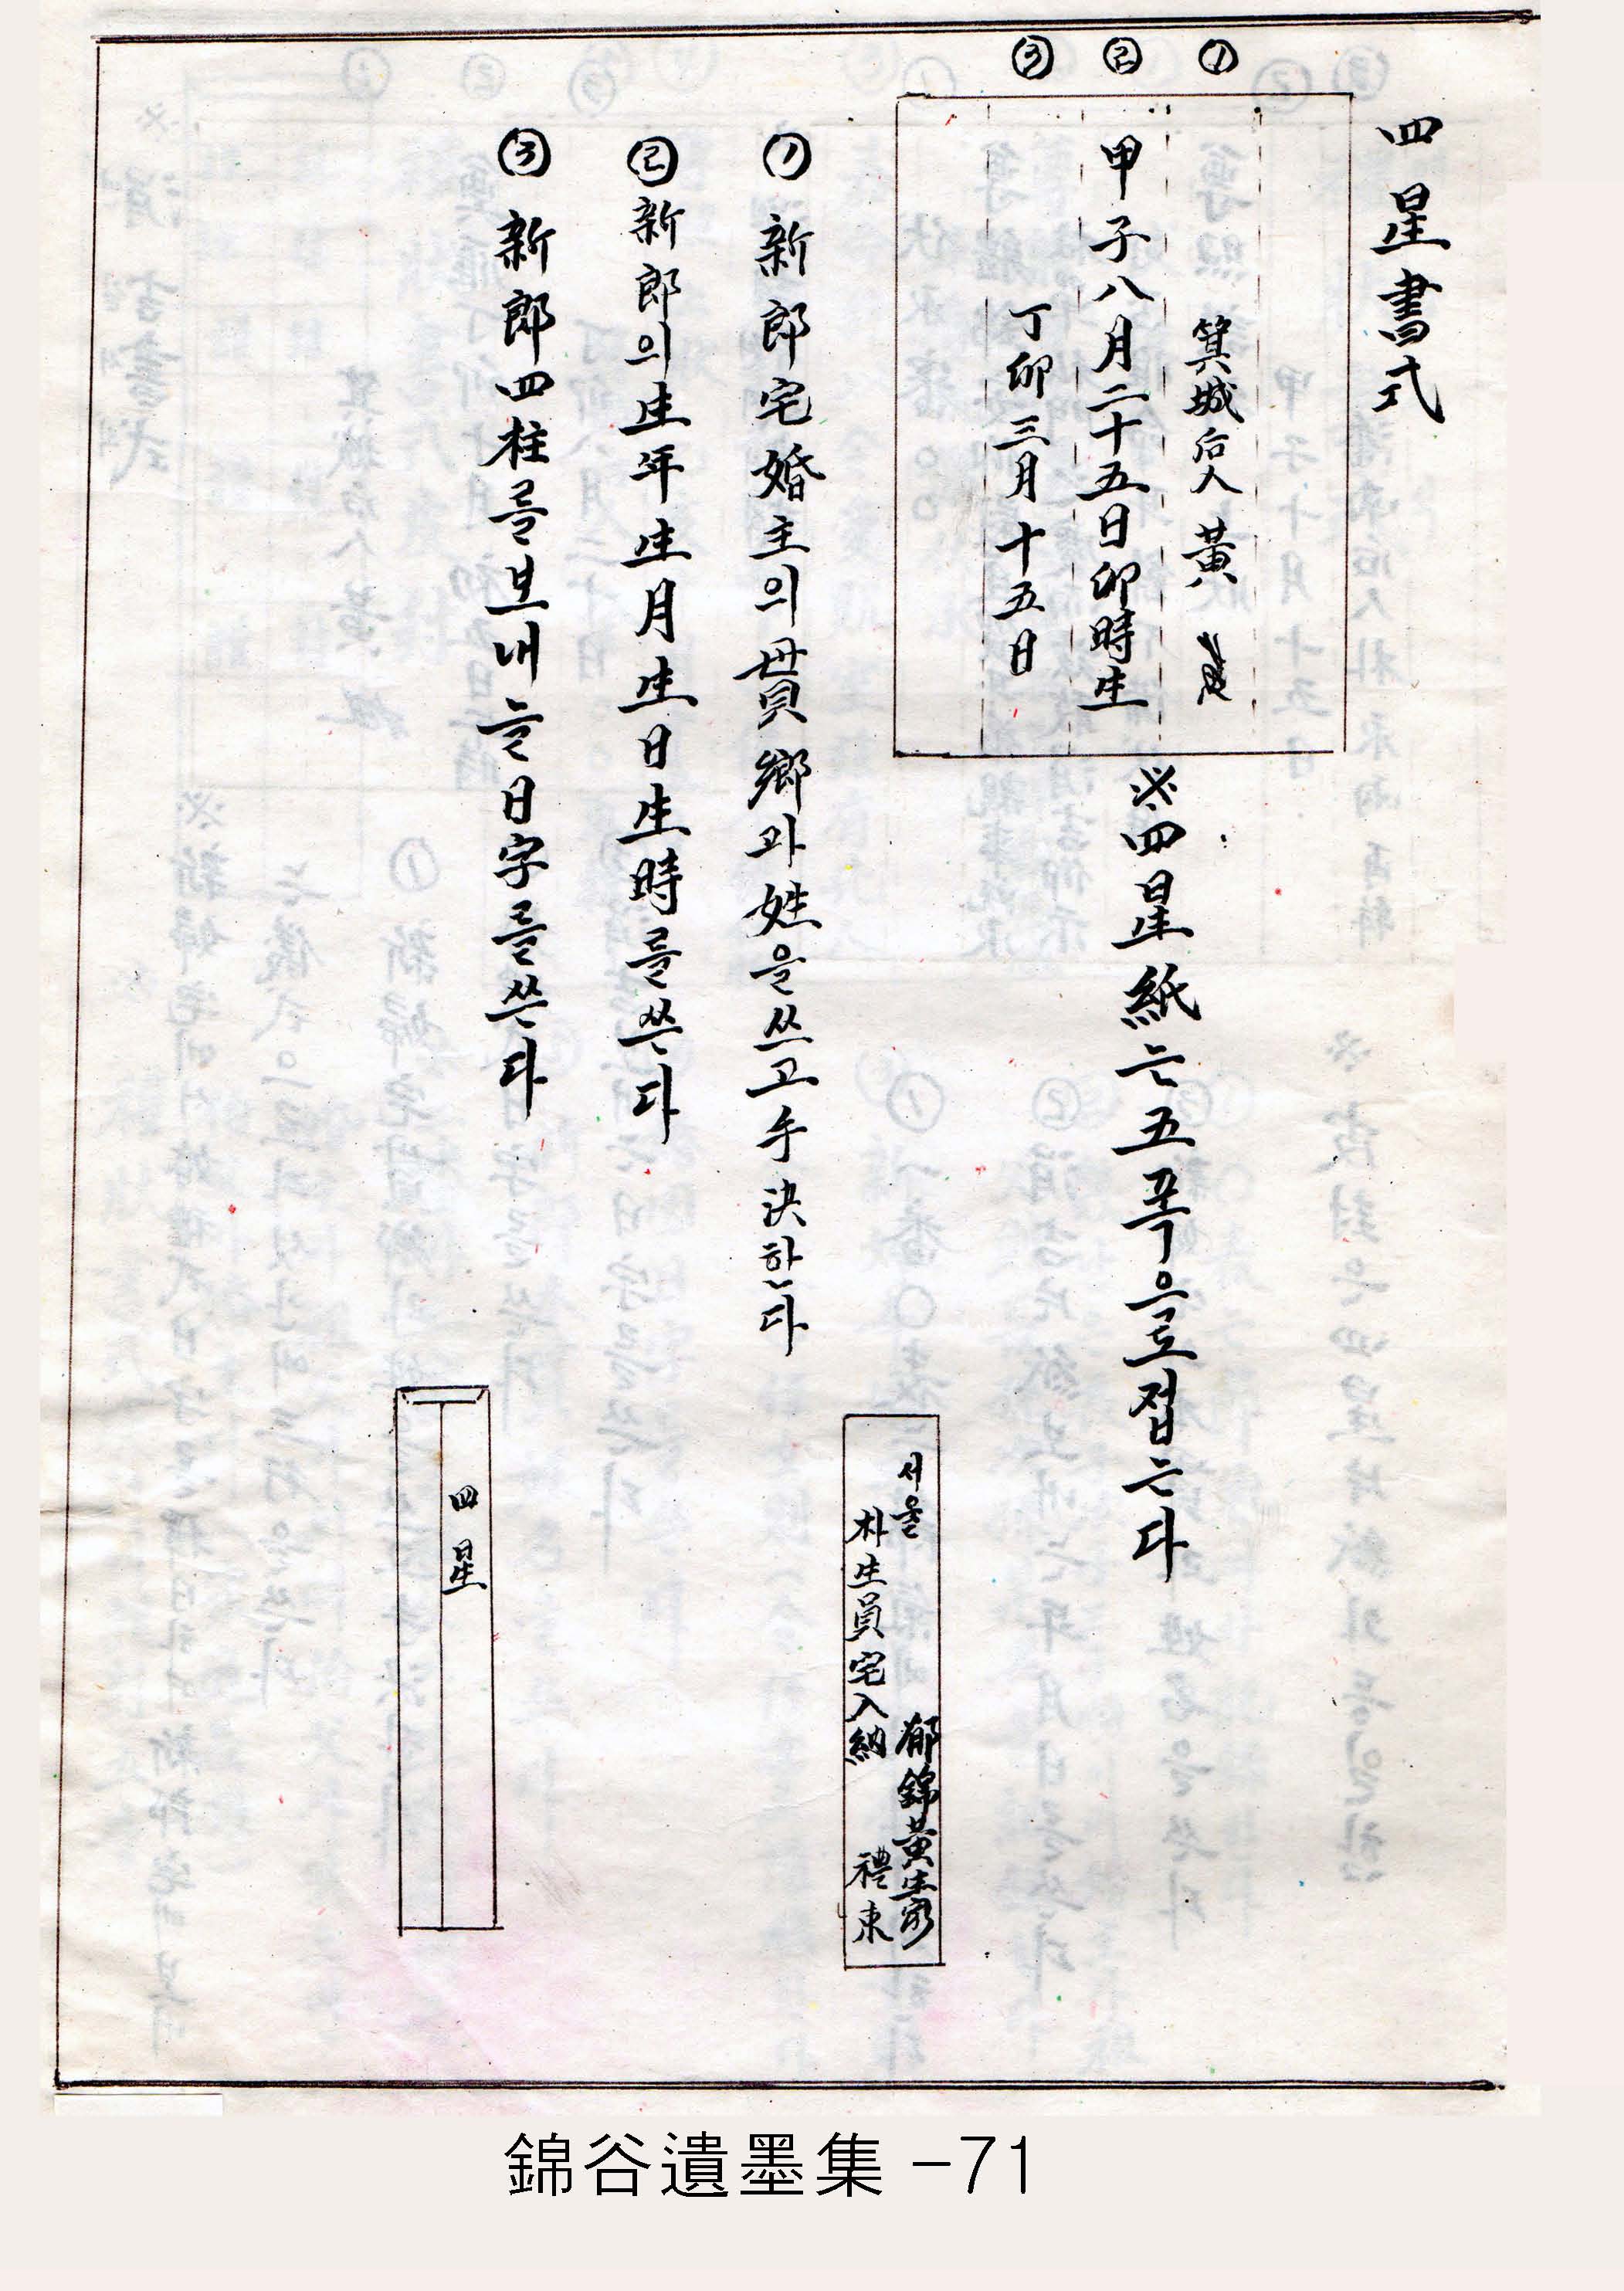 四星書式
① ② ③
箕城后人 黃
甲子八月二十五日卯時生
丁卯三月十五日
※四星紙는五폭으로접는다
① 新郎宅婚主의貫鄉과姓을쓰고手決한다
②新郎의生年生月生日生時를쓴다
③ 新郎四柱를보내는日字를쓴다
서울 郁錦黃生家
朴生員宅入納 禮東
四星
錦谷遺墨集 -71